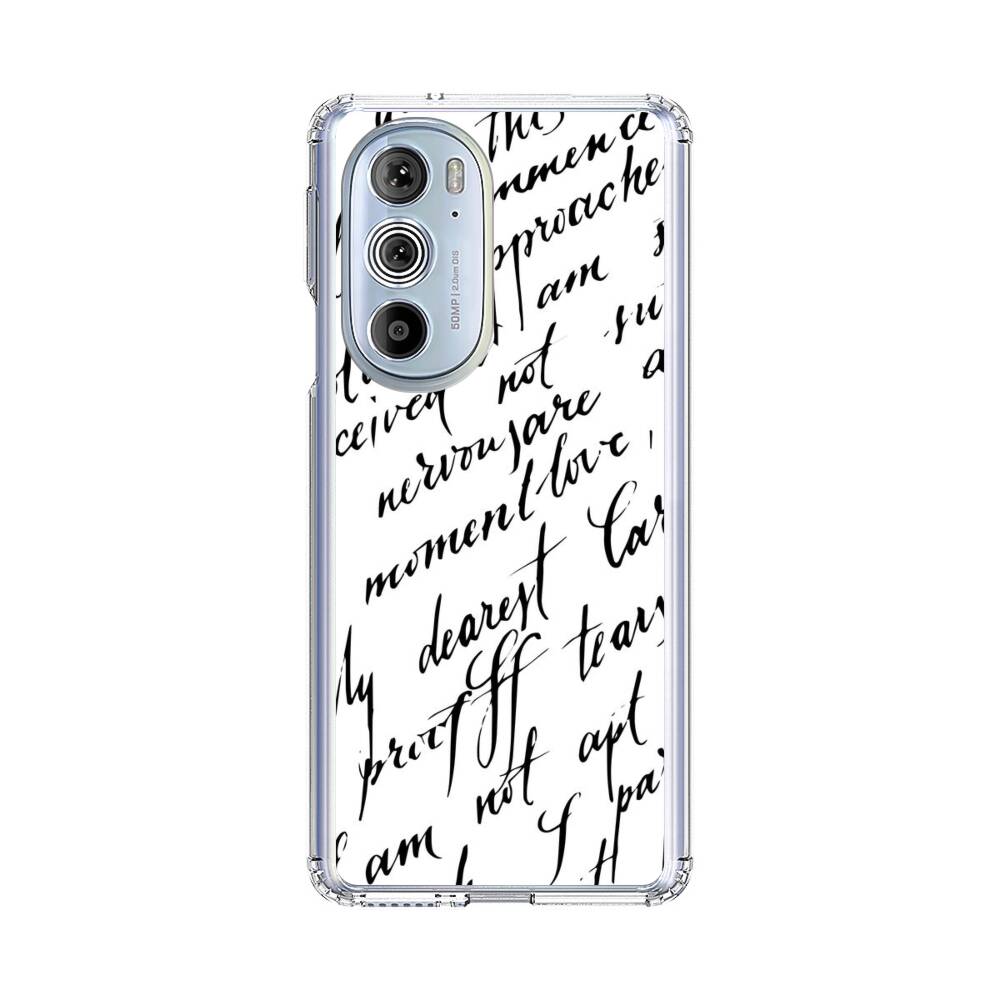 this
mmence
pproache
am
50MP | 2.0um OIS
ceived not su
nervous are a
moment love,
dearest Car
My tears
proof
not apt
I am pa